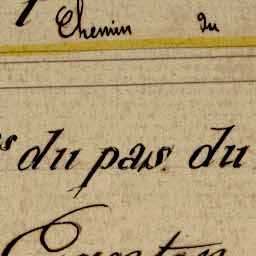 Chemin du
s du pas du